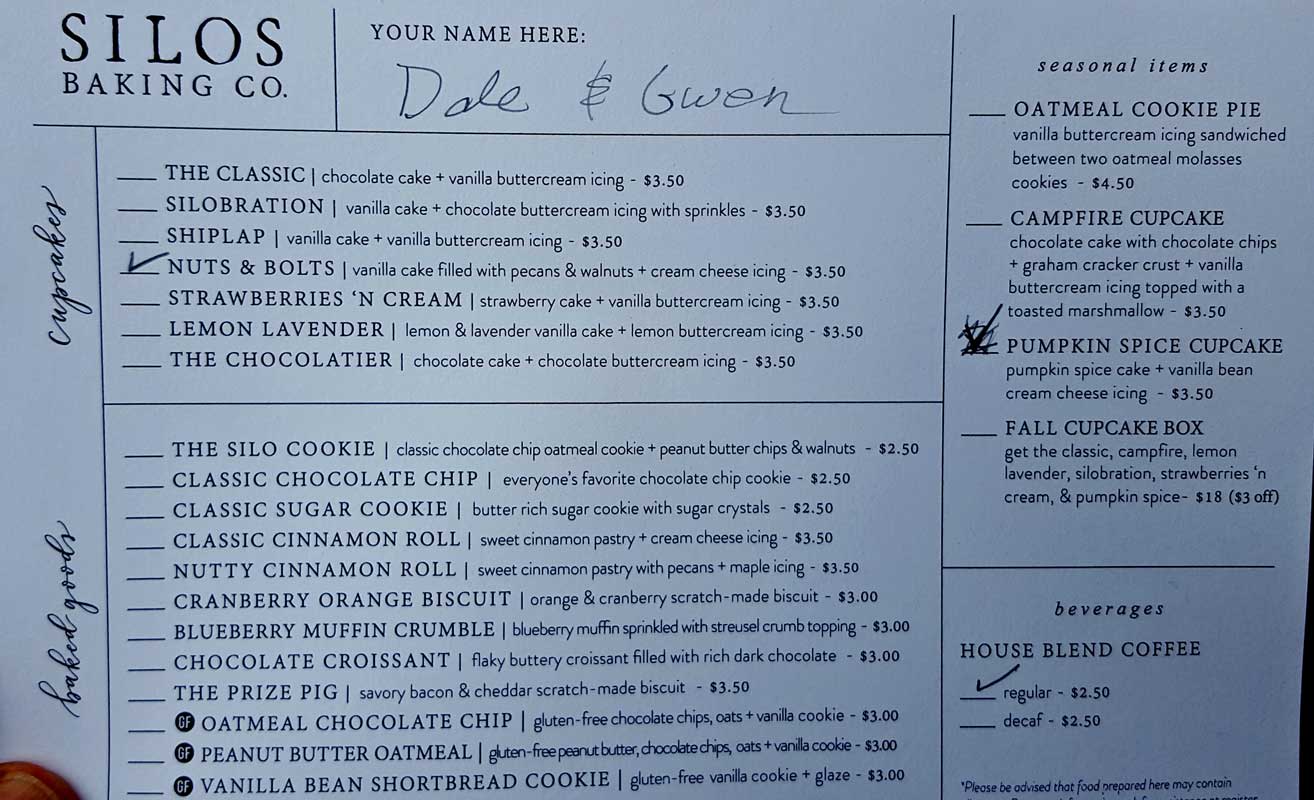 SILOS
BAKING CO.
YOUR NAME HERE:
Dale & Gwen
cupcakes
THE CLASSIC | chocolate cake + vanilla buttercream icing - $3.50
SILOBRATION | vanilla cake + chocolate buttercream icing with sprinkles - $3.50
SHIPLAP | vanilla cake + vanilla buttercream icing - $3.50
NUTS & BOLTS | vanilla cake filled with pecans & walnuts + cream cheese icing - $3.50
STRAWBERRIES ‘N CREAM | strawberry cake + vanilla buttercream icing - $3.50
LEMON LAVENDER | lemon & lavender vanilla cake + lemon buttercream icing - $3.50
THE CHOCOLATIER | chocolate cake + chocolate buttercream icing - $3.50
baked goods
THE SILO COOKIE | classic chocolate chip oatmeal cookie + peanut butter chips & walnuts - $2.50
CLASSIC CHOCOLATE CHIP | everyone's favorite chocolate chip cookie - $2.50
CLASSIC SUGAR COOKIE | butter rich sugar cookie with sugar crystals - $2.50
CLASSIC CINNAMON ROLL | sweet cinnamon pastry + cream cheese icing - $3.50
NUTTY CINNAMON ROLL | sweet cinnamon pastry with pecans + maple icing - $3.50
CRANBERRY ORANGE BISCUIT | orange & cranberry scratch-made biscuit - $3.00
BLUEBERRY MUFFIN CRUMBLE | blueberry muffin sprinkled with streusel crumb topping - $3.00
CHOCOLATE CROISSANT | flaky buttery croissant filled with rich dark chocolate - $3.00
THE PRIZE PIG | savory bacon & cheddar scratch-made biscuit - $3.50
GF OATMEAL CHOCOLATE CHIP | gluten-free chocolate chips, oats + vanilla cookie - $3.00
GF PEANUT BUTTER OATMEAL | gluten-free peanut butter, chocolate chips, oats + vanilla cookie - $3.00
GF VANILLA BEAN SHORTBREAD COOKIE | gluten-free vanilla cookie + glaze - $3.00
seasonal items
OATMEAL COOKIE PIE
vanilla buttercream icing sandwiched
between two oatmeal molasses
cookies - $4.50
CAMPFIRE CUPCAKE
chocolate cake with chocolate chips
+ graham cracker crust + vanilla
buttercream icing topped with a
toasted marshmallow - $3.50
PUMPKIN SPICE CUPCAKE
pumpkin spice cake + vanilla bean
cream cheese icing - $3.50
FALL CUPCAKE BOX
get the classic, campfire, lemon
lavender, silobration, strawberries ‘n
cream, & pumpkin spice- $18 ($3 off)
beverages
HOUSE BLEND COFFEE
regular - $2.50
decaf - $2.50
*Please be advised that food prepared here may contain